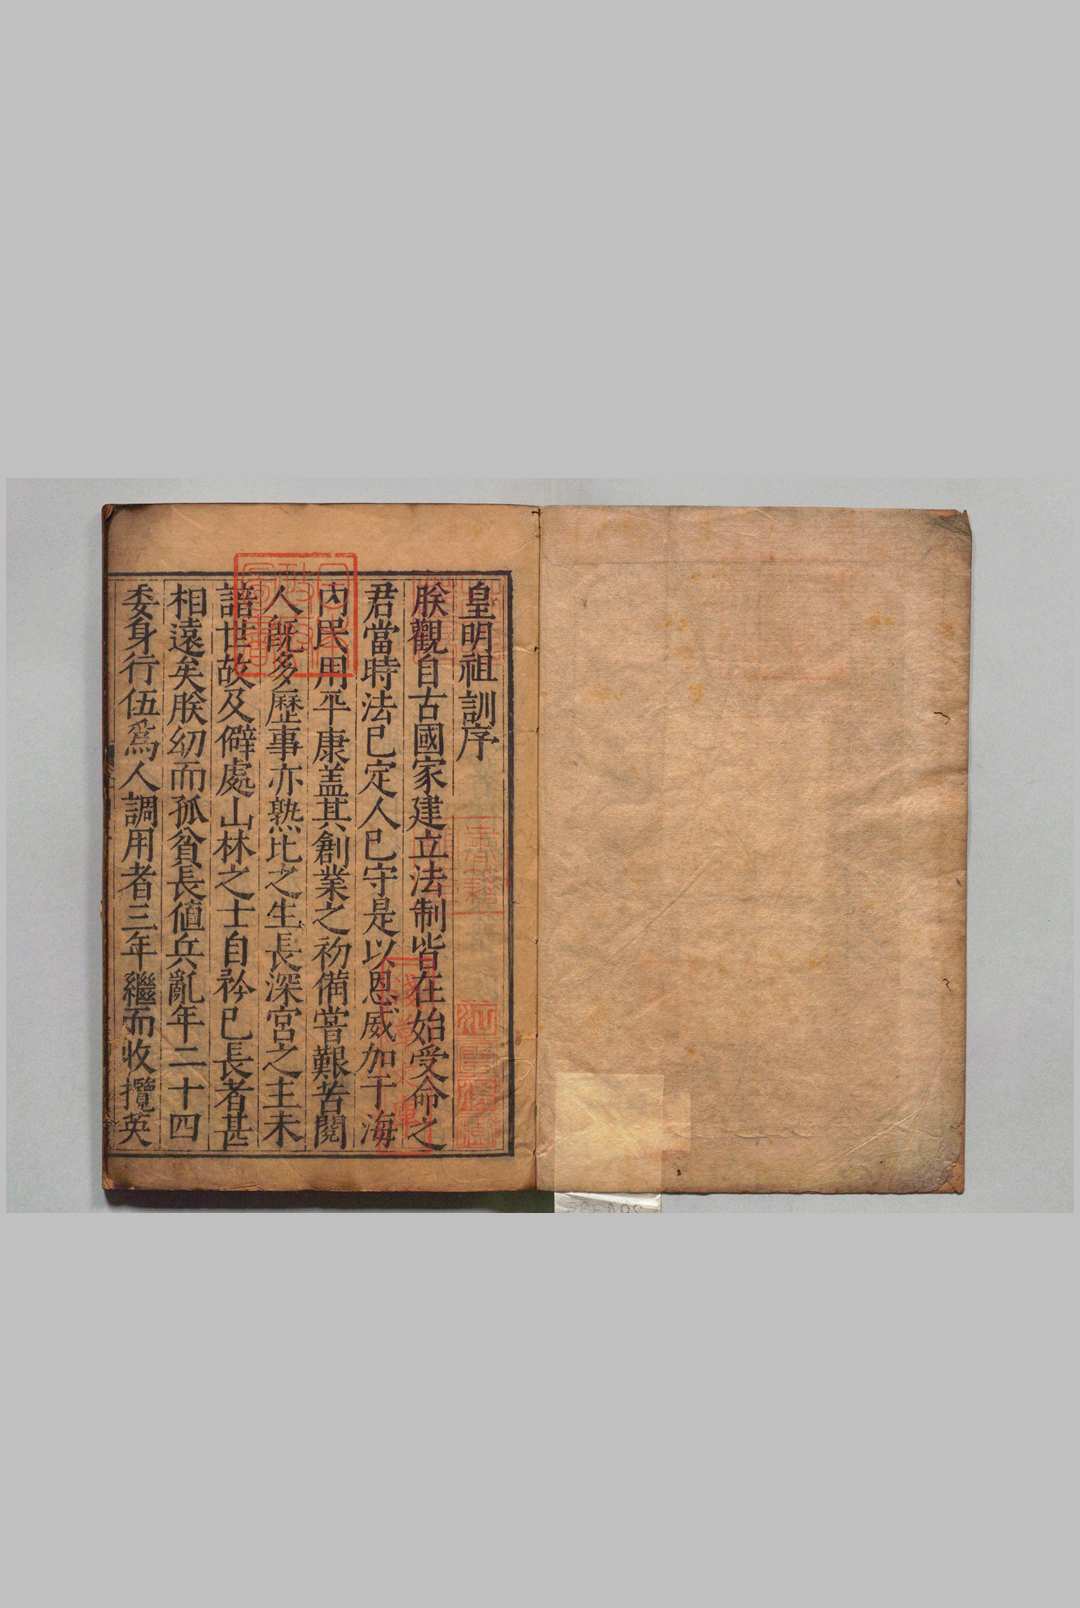 皇明祖訓序
朕觀自古國家建立法制皆在始受命之
君當時法已定人已守是以恩威加于海
內民用平康盖其創業之初備甞艱苦閱
人既多歷事亦熟比之生長深宮之主未
諳世故及僻處山林之士自矜已長者甚
相遠矣朕幼而孤貧長値兵亂年二十四
委身行伍爲人調用者三年繼而收攬英